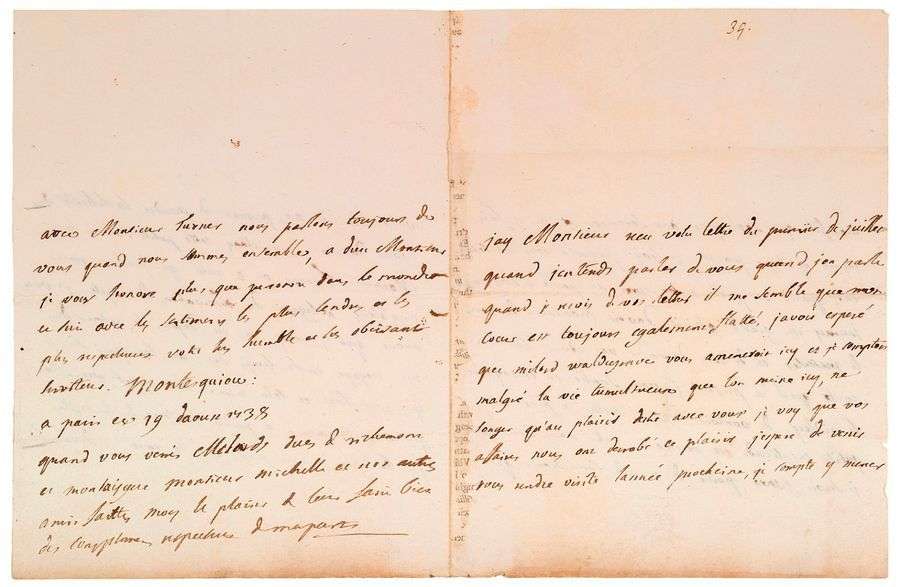 39.
jay Monsieur receu votre lettre du premier de juillet
quand jentends parler de vous quand jen parle
quand je recois de vos lettres il me semble que mon
coeur est toujours egalement flatté, javois esperé
que milord waldegrave vous ameneroit icy et je comptois
malgré la vie tumultueuse que lon mene icy, ne
songer qu'au plaisir destre avec vous je voy que vos
affaires nous ont derobé ce plaisir jespere de venir
vous rendre visite lannée prochaine, je compte y mener
avec Monsieur turner nous parlons toujours de
vous quand nous sommes ensembles, a dieu Monsieur
je vous honore plus que personne dans le monde
et suis avec les sentimens les plus tendres et les
plus respectueux votre tres humble et tres obeissant
serviteur. Montesquieu:
a paris ce 19 daoust 1738
quand vous verrés Melords ducs de richemont
et montaigue monsieur michelle et nos autres
amis faittes moy le plaisir de leur faire bien
des complimens respectueux de ma part